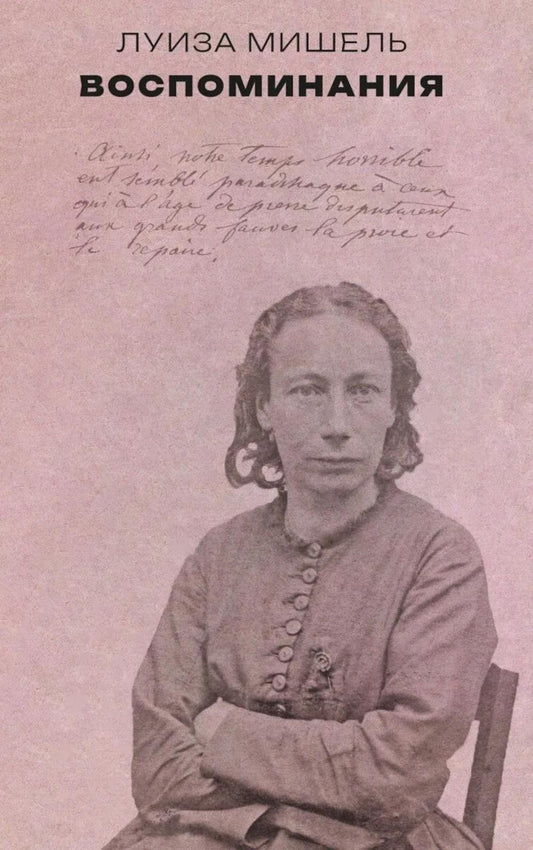 ЛУИЗА МИШЕЛЬ
ВОСПОМИНАНИЯ
Ainsi notre temps horrible
eut semblé paradisiaque à ceux
qui à l'âge de pierre disputaient
aux grands fauves la proie et
le repaire.